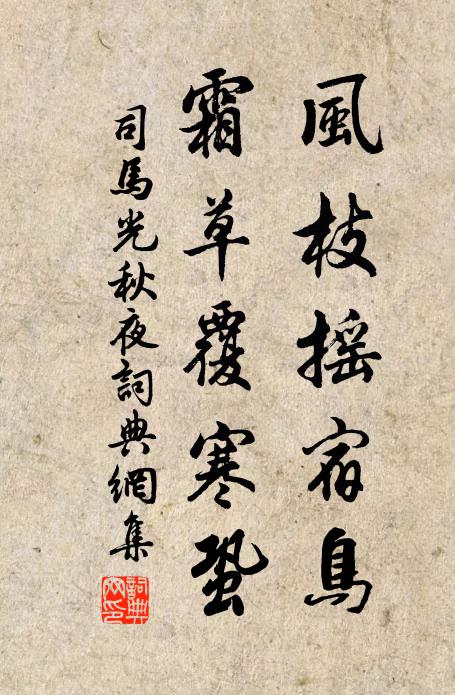 風枝摇宿鳥
霜草覆寒蛩
司馬光秋夜詞典網集
詞典
网印